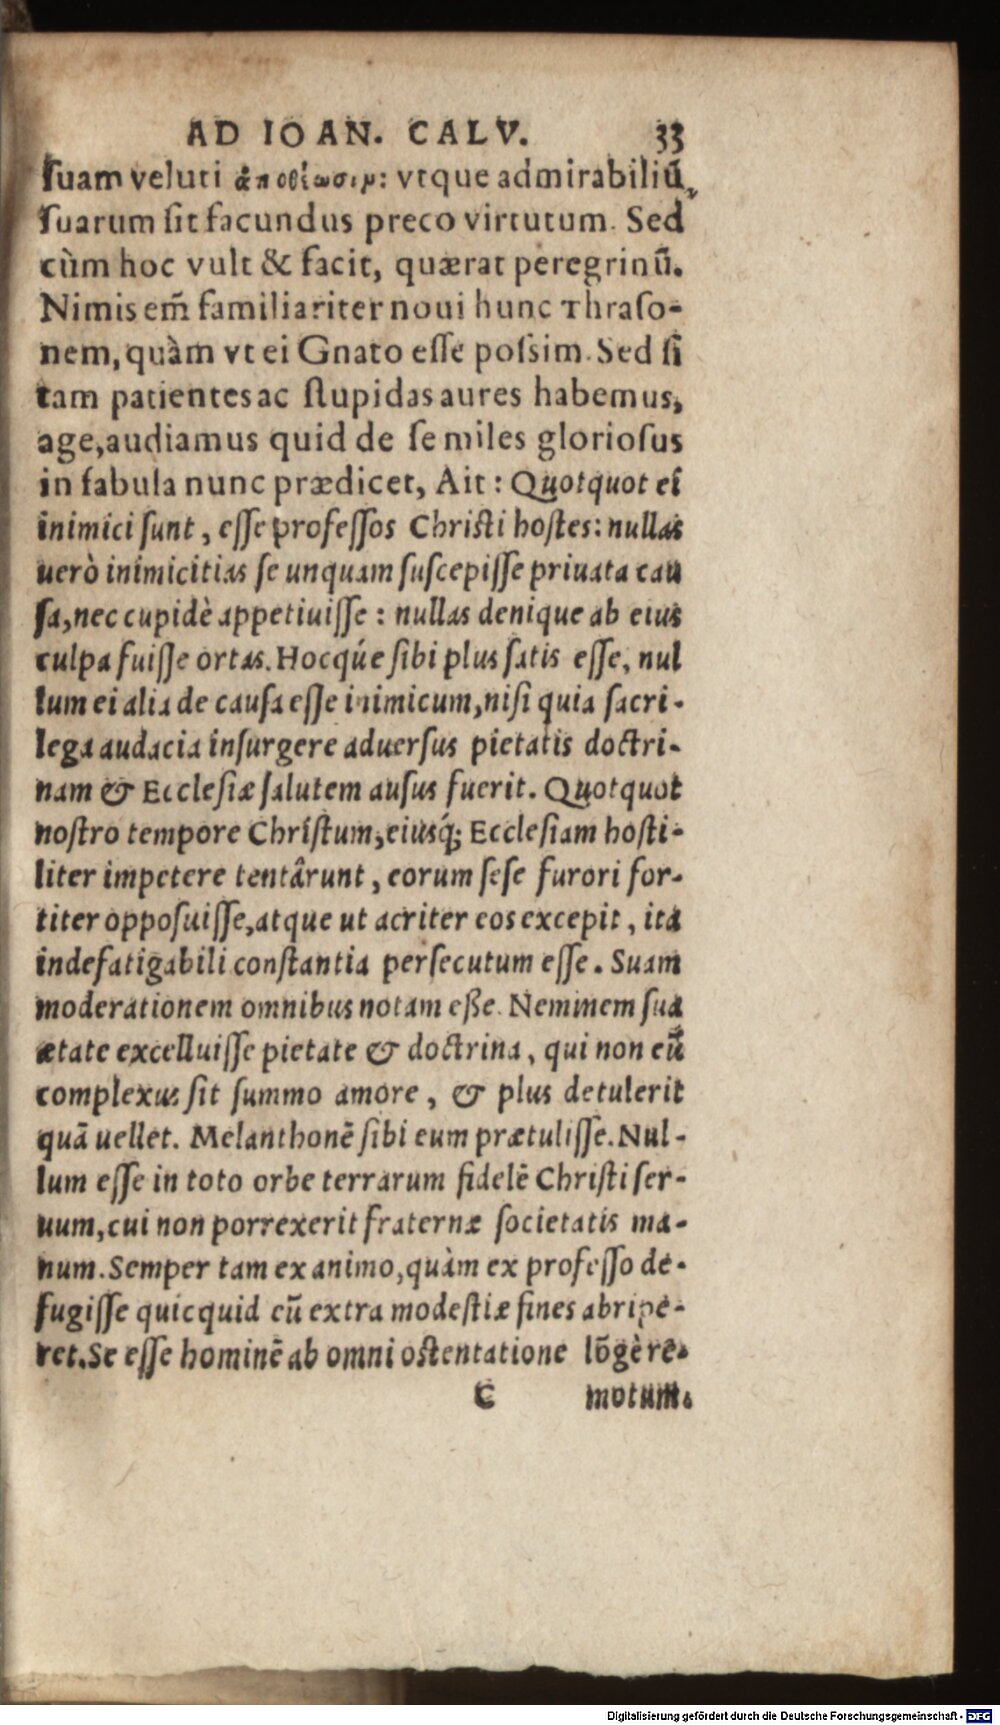 AD IOAN. CALV. 33
ſuam veluti ἀποθέωσιν: vtque admirabiliū
ſuarum ſit facundus preco virtutum. Sed
cùm hoc vult & facit, quærat peregrinū.
Nimis em̄ familiariter noui hunc Thraſo-
nem, quàm vt ei Gnato eſſe poſsim. Sed ſi
tam patientes ac ſtupidas aures habemus,
age, audiamus quid de ſe miles glorioſus
in fabula nunc prædicet, Ait: Quotquot ei
inimici ſunt, eſſe profeſſos Chriſti hoſtes: nullas
uerò inimicitias ſe unquam ſuſcepiſſe priuata cau
ſa, nec cupidè appetiuiſſe: nullas denique ab eius
culpa fuiſſe ortas. Hocq́ue ſibi plus ſatis eſſe, nul
lum ei alia de cauſa eſſe inimicum, niſi quia ſacri-
lega audacia inſurgere aduerſus pietatis doctri-
nam & Eccleſiæ ſalutem auſus fuerit. Quotquot
noſtro tempore Chriſtum, eiusq́; Eccleſiam hoſti-
liter impetere tentârunt, eorum ſeſe furori for-
titer oppoſuiſſe, atque ut acriter eos excepit, ita
indefatigabili conſtantia perſecutum eſſe. Suam
moderationem omnibus notam eße. Neminem ſua
ætate excelluiſſe pietate & doctrina, qui non eū
complexus ſit ſummo amore, & plus detulerit
quā uellet. Melanthonē ſibi eum prætuliſſe. Nul-
lum eſſe in toto orbe terrarum fidelē Chriſti ſer-
uum, cui non porrexerit fraternæ ſocietatis ma-
num. Semper tam ex animo, quàm ex profeſſo de-
fugiſſe quicquid eū extra modeſtiæ fines abripe-
ret. Se eſſe hominē ab omni oſtentatione lōgè re-
C motum.
Digitalisierung gefördert durch die Deutsche Forschungsgemeinschaft - DFG